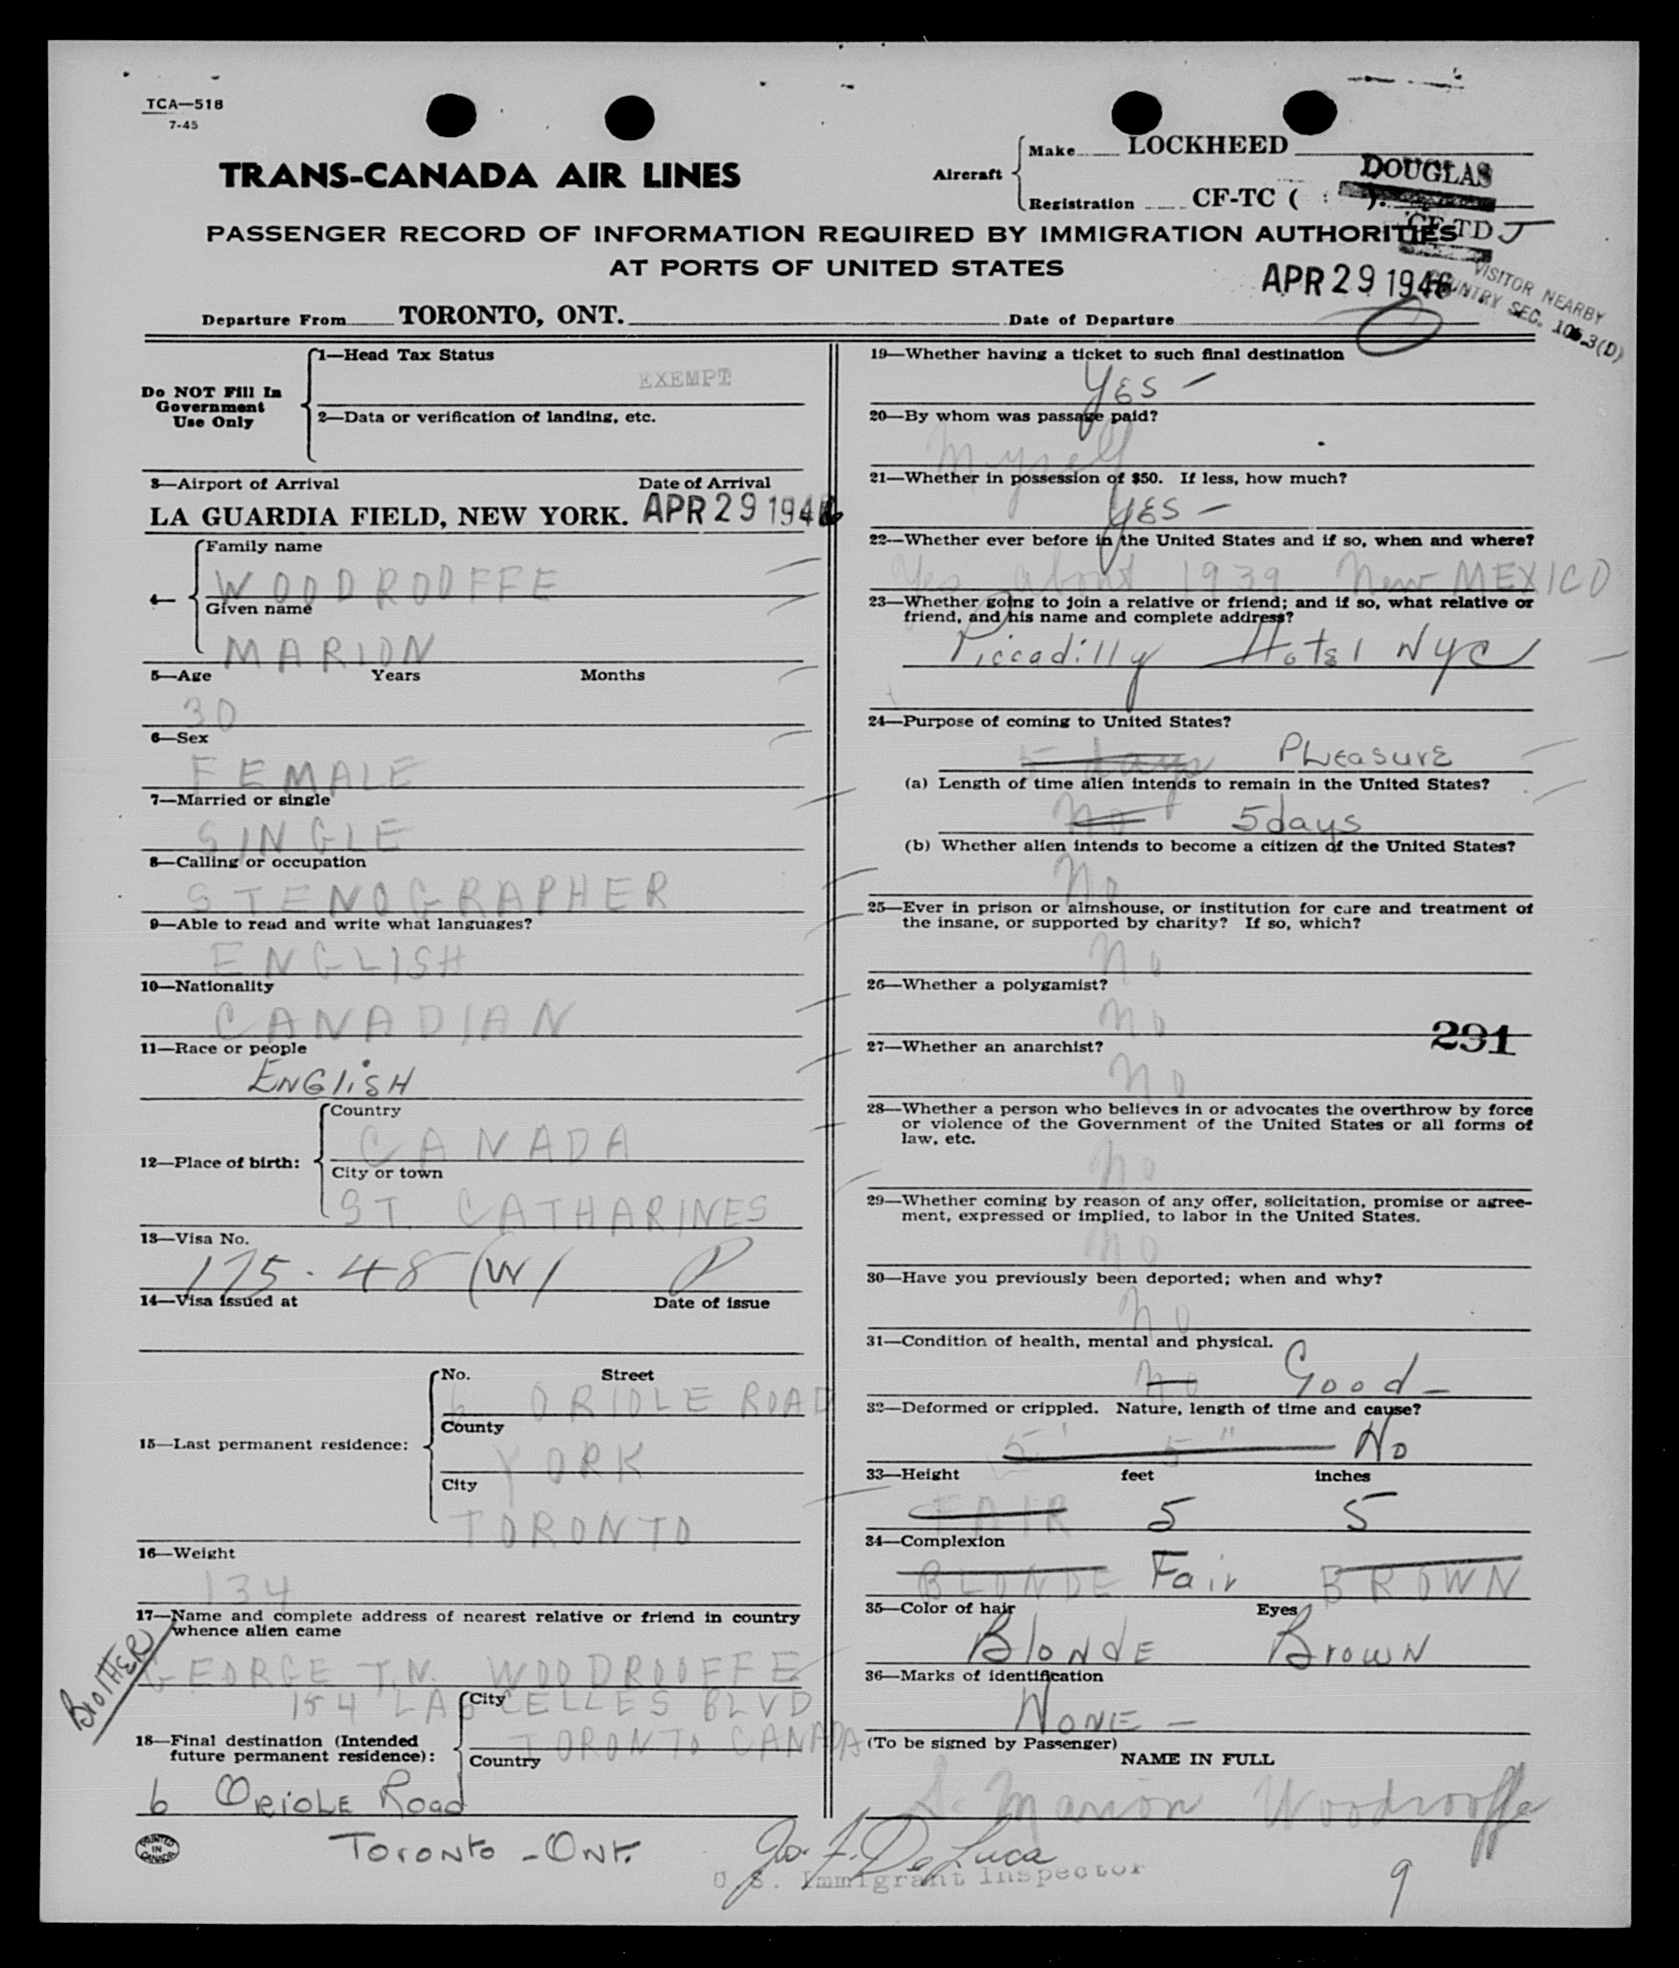 TCA—518
7-45
TRANS-CANADA AIR LINES
Aircraft
Make LOCKHEED
DOUGLAS
Registration CF-TC ( ).
CF-TD J
PASSENGER RECORD OF INFORMATION REQUIRED BY IMMIGRATION AUTHORITIES
AT PORTS OF UNITED STATES
APR 29 1946
VISITOR NEARBY
COUNTRY SEC. 3(D)
Departure From TORONTO, ONT. Date of Departure
Do NOT Fill In
Government
Use Only
1—Head Tax Status
EXEMPT
2—Data or verification of landing, etc.
3—Airport of Arrival Date of Arrival
LA GUARDIA FIELD, NEW YORK. APR 29 1946
4—
Family name
WOODROOFFE
Given name
MARION
5—Age Years Months
30
6—Sex
FEMALE
7—Married or single
SINGLE
8—Calling or occupation
STENOGRAPHER
9—Able to read and write what languages?
ENGLISH
10—Nationality
CANADIAN
11—Race or people
ENGLISH
12—Place of birth:
Country
CANADA
City or town
ST. CATHARINES
13—Visa No.
175-48 (W) P
14—Visa issued at Date of issue
15—Last permanent residence:
No. Street
6 ORIOLE ROAD
County
YORK
City
TORONTO
16—Weight
134
17—Name and complete address of nearest relative or friend in country
whence alien came
BROTHER
GEORGE T.N. WOODROOFFE
194 LASCELLES BLVD
City
TORONTO CANADA
18—Final destination (Intended
future permanent residence):
Country
6 ORIOLE ROAD
TORONTO - ONT.
PRINTED
IN
CANADA
19—Whether having a ticket to such final destination
YES -
20—By whom was passage paid?
Myself
21—Whether in possession of $50. If less, how much?
YES -
22—Whether ever before in the United States and if so, when and where?
Yes about 1939 New MEXICO
23—Whether going to join a relative or friend; and if so, what relative or
friend, and his name and complete address?
Piccadilly Hotel NYC
24—Purpose of coming to United States?
5 days PLEASURE
(a) Length of time alien intends to remain in the United States?
No 5 days
(b) Whether alien intends to become a citizen of the United States?
No
25—Ever in prison or almshouse, or institution for care and treatment of
the insane, or supported by charity? If so, which?
No
26—Whether a polygamist?
No
291
27—Whether an anarchist?
No
28—Whether a person who believes in or advocates the overthrow by force
or violence of the Government of the United States or all forms of
law, etc.
No
29—Whether coming by reason of any offer, solicitation, promise or agree-
ment, expressed or implied, to labor in the United States.
No
30—Have you previously been deported; when and why?
No
31—Condition of health, mental and physical.
No Good -
32—Deformed or crippled. Nature, length of time and cause?
5' 5" No
33—Height feet inches
FAIR 5 5
34—Complexion
BLONDE Fair BROWN
35—Color of hair Eyes
BLONDE BROWN
36—Marks of identification
NONE -
(To be signed by Passenger)
NAME IN FULL
S. Marion Woodrooffe
Jos. F. De Luca
U.S. Immigrant Inspector
9